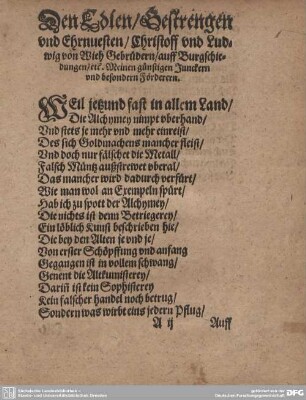 Den Edlen/Gestrengen
vnd Ehrnuesten/ Christoff vnd Lud-
wig von Wieh Gebrüdern/auff Burgschie-
dungen/etc. Meinen günstigen Junckern
vnd besondern Förderern.
WEil jetzund fast in allem Land/
Die Alchymey nimpt vberhand/
Vnd stets je mehr vnd mehr einreist/
Des sich Goldmachens mancher fleist/
Vnd doch nur fälschet die Metall/
Falsch Müntz außstrewet vberal/
Das mancher wird dadurch verfürt/
Wie man wol an Exempeln spürt/
Hab ich zu spott der Alchymey/
Die nichts ist denn Betriegerey/
Ein löblich Kunst beschrieben hie/
Die bey den Alten je vnd je/
Von erster Schöpffung vnd anfang
Gegangen ist in vollem schwang/
Genent die Altkumisterey/
Dariñ ist kein Sophisterey
Kein falscher handel noch betrug/
Sondern was wirbt eins jedern Pflug/
A ij Auff